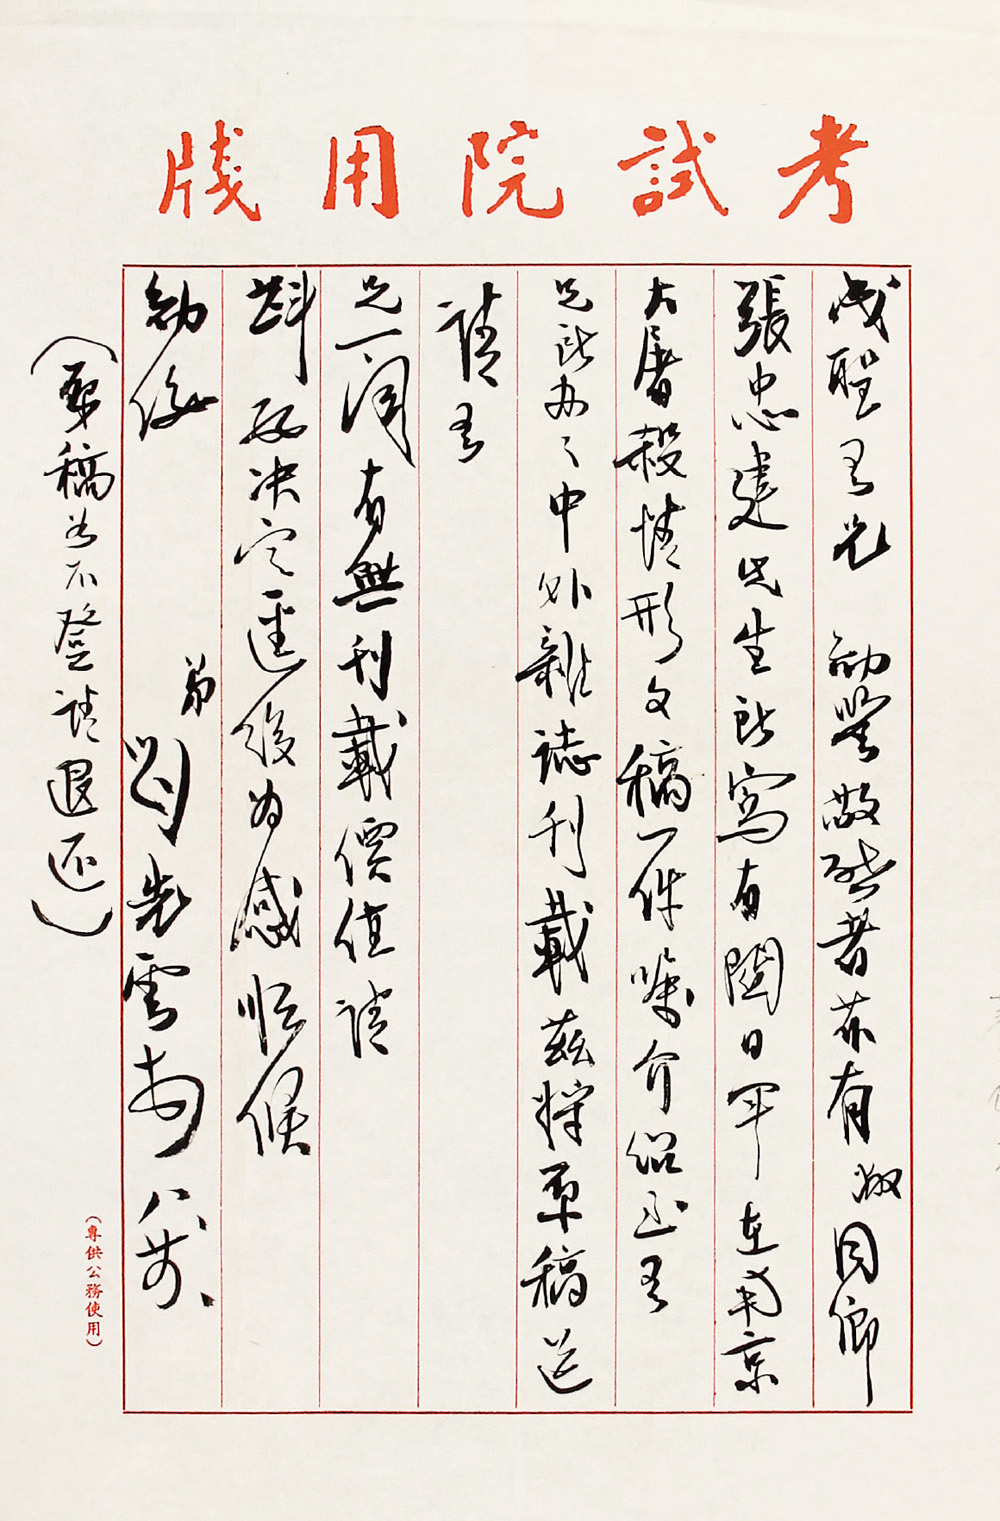 考試院用牋
成聖吾兄 勛鑒敬啓者茲有敝同鄉
張忠建先生所寫有關日軍在南京
大屠殺情形文稿一件囑介紹至吾
兄所办之中外雜誌刊載茲將原稿送
請吾
兄一閱有無刊載價值請
斟酌決定逕復為感順候
勛綏
弟 劉先雲 八
(原稿如不登請退还)
(專供公務使用)